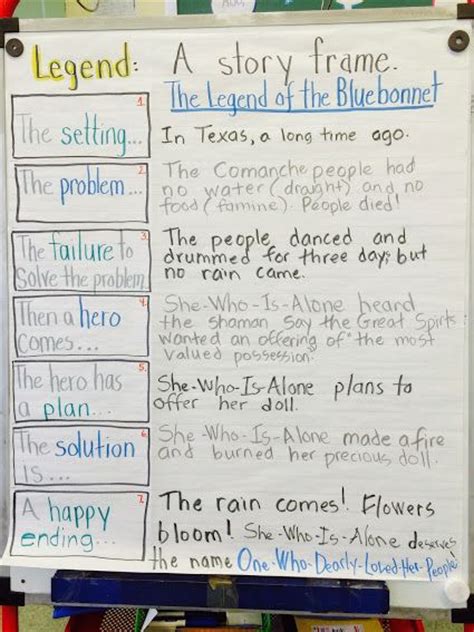 Legend: A story frame.
The Legend of the Bluebonnet
1.
The setting...
In Texas, a long time ago.
2.
The problem...
The Comanche people had
no water (draught) and no
food (famine). People died!
3.
The failure to
solve the problem
The people danced and
drummed for three days, but
no rain came.
4.
Then a hero
comes...
She-Who-Is-Alone heard
the shaman say the Great Spirits
wanted an offering of "the most
valued possession."
5.
The hero has
a plan...
She-Who-Is-Alone plans to
offer her doll.
6.
The solution
is...
She-Who-Is-Alone made a fire
and burned her precious doll.
7.
A happy
ending...
The rain comes! Flowers
bloom! She-Who-Is-Alone deserves
the name One-Who-Dearly-Loved-Her-People